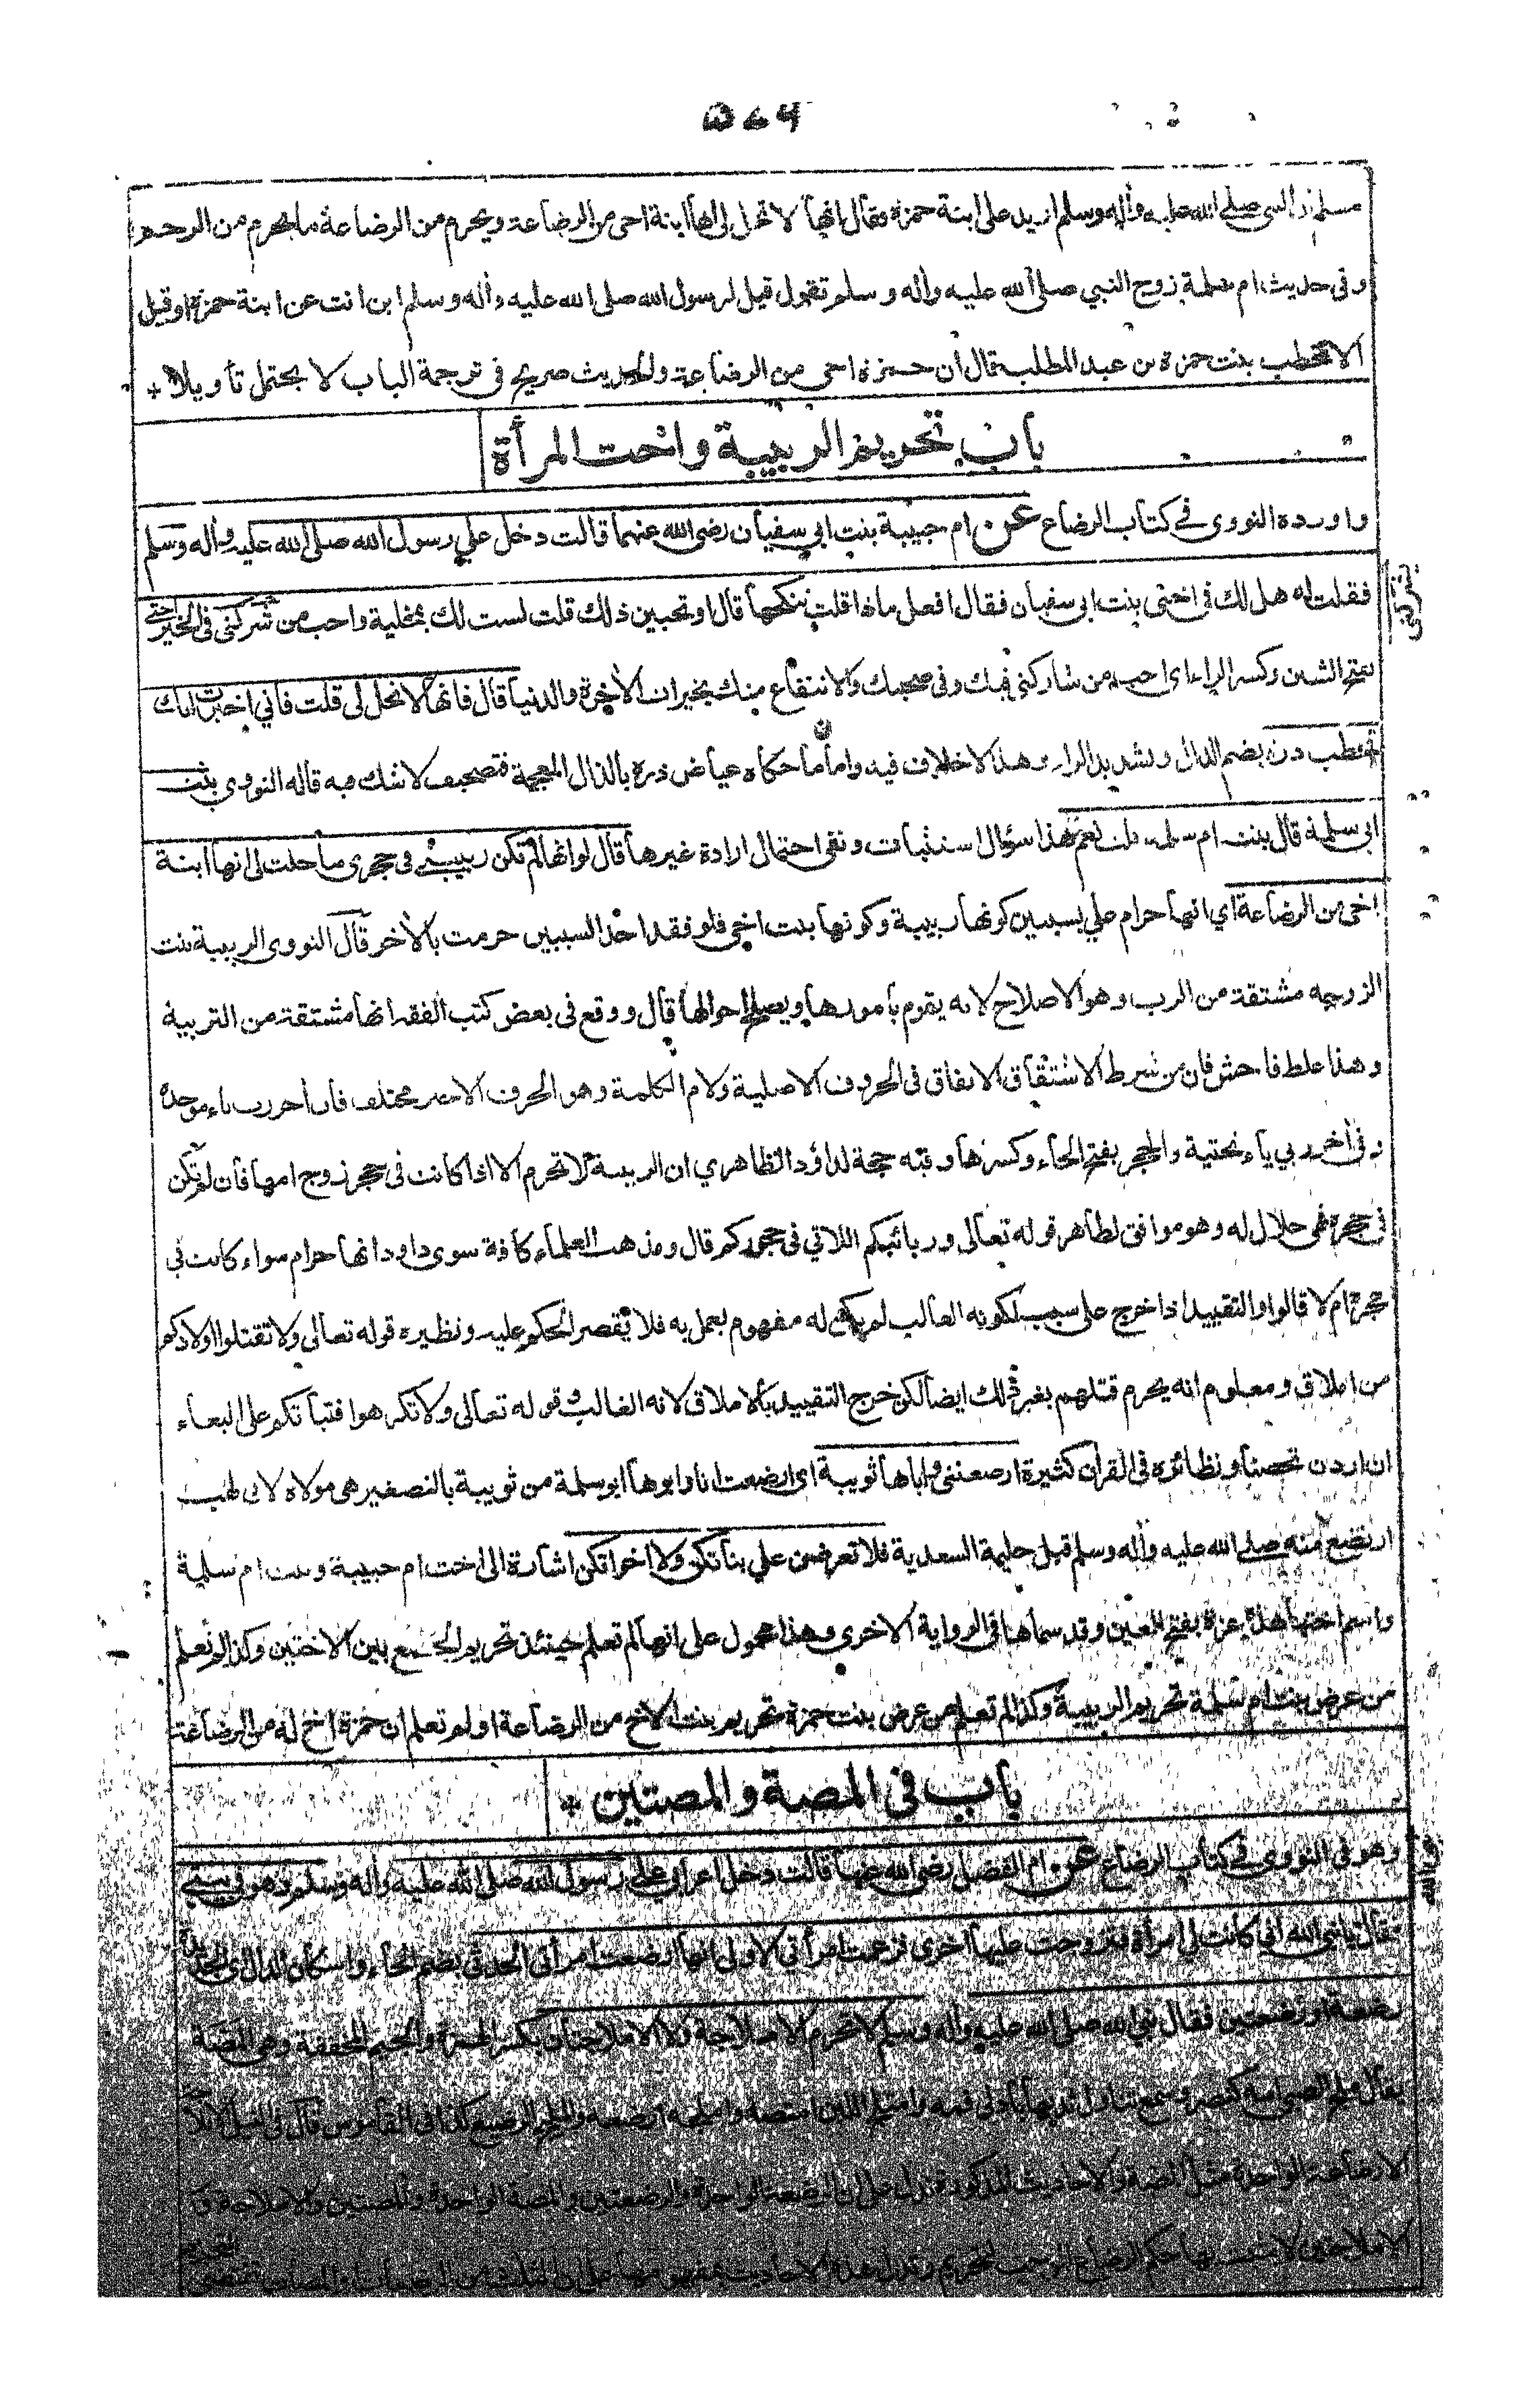 ٥٤٩
مسلم ان النبي صلى الله عليه وأله وسلم اريد على ابنة حمزة فقال انها لا تحل لي انها ابنة اخي من الرضاعة ويحرم من الرضاعة ما يحرم من الرحم
وفى حديث ام سلمة زوج النبي صلى الله عليه واله وسلم تقول قيل لرسول الله صلى الله عليه وأله وسلم اين انت عن ابنة حمزة او قيل
الا تخطب بنت حمزة بن عبد المطلب قال ان حمزة اخي من الرضاعة والحديث صريح فى ترجمة الباب لا يحتمل تأويلا *
باب تحريم الربيبة واخت المرأة
واورده النووى فى كتاب الرضاع عن ام حبيبة بنت ابي سفيان رضى الله عنهما قالت دخل علي رسول الله صلى الله عليه وأله وسلم
فقلت له هل لك فى اختى بنت ابى سفيان فقال افعل ماذا قلت تنكحها قال او تحبين ذلك قلت لست لك بمخلية واحب من شركنى فى الخير اختى
بفتح الشين وكسر الراء اى احب من شاركنى فيك وفى صحبتك والانتفاع منك بخيرات الأخرة والدنيا قال فانها لا تحل لى قلت فأني اخبرت انك
تخطب درة بضم الدال وتشديد الراء وهذا لا خلاف فيه واما ما حكاه عياض ذرة بالذال المعجمة فتصحيف لا شك فيه قاله النووى بنت
ابى سلمة قال بنت ام سلمة قلت نعم هذا سؤال استثبات ونفى احتمال ارادة غيرها قال لو انها لم تكن ربيبتى فى حجرى ما حلت لى انها ابنة
اخى من الرضاعة اي انها حرام علي بسببين كونها ربيبة وكونها بنت اخى فلو فقد احد السببين حرمت بالأخر قال النووى الربيبة بنت
الزوجة مشتقة من الرب وهو الاصلاح لانه يقوم بأمورها ويصلح احوالها قال ووقع فى بعض كتب الفقه انها مشتقة من التربية
وهذا غلط فاحش فان من شرط الاشتقاق الاتفاق فى الحروف الاصلية ولام الكلمة وهو الحرف الاخير مختلف فأن أخر رب باء موحدة
وفى أخر ربي ياء تحتية والحجر بفتح الحاء وكسرها وفيه حجة لداؤد الظاهري ان الربيبة لا تحرم الا اذا كانت فى حجر زوج امها فأن لم تكن
فى حجره فهى حلال له وهو موافق لظاهر قوله تعالى وربائبكم اللاتي فى حجوركم قال ومذهب العلماء كافة سوى داود انها حرام سواء كانت فى
حجره ام لا قالوا والتقييد اذا خرج على سبب لكونه الغالب لم يكن له مفهوم يعمل به فلا يقصر الحكم عليه ونظيره قوله تعالى ولا تقتلوا اولادكم
من املاق ومعلوم انه يحرم قتلهم بغير ذلك ايضا لكن خرج التقييد بألاملاق لانه الغالب وقوله تعالى ولا تكرهوا فتياتكم على البغاء
ان اردن تحصنا ونظائره فى القرأن كثيرة ارضعتنى واباها ثويبة اى ارضعت انا وابوها ابو سلمة من ثويبة بالتصغير هى مولاة لابى لهب
ارتضع منه صلى الله عليه وأله وسلم قبل حليمة السعدية فلا تعرضن علي بناتكن ولا اخواتكن اشارة الى اخت ام حبيبة وبنت ام سلمة
واسم اختها هذه عزة بفتح العين وقد سماها فى الرواية الاخرى وهذا محمول على انها لم تعلم حينئذ تحريم الجمع بين الاختين وكذا لم تعلم
من عرض بنت ام سلمة تحريم الربيبة وكذا لم تعلم من عرض بنت حمزة تحريم بنت الاخ من الرضاعة او لم تعلم ان حمزة اخ له من الرضاعة
باب فى المصة والمصتين *
وهو فى النووى فى كتاب الرضاع عن ام الفضل رضى الله عنها قالت دخل اعرابى على رسول الله صلى الله عليه وأله وسلم وهو فى بيتى
فقال يا نبى الله انى كانت لى امرأة فتزوجت عليها اخرى فزعمت امرأتى الاولى انها ارضعت امرأتى الحدثى بضم الحاء واسكان الدال اى الجديدة
رضعة او رضعتين فقال نبي الله صلى الله عليه وأله وسلم لا تحرم الاملاجة ولا الاملاجتان بكسر الهمزة والجيم المخففة وهى المصة
يقال ملج الصبى امه كنصر وسمع تناول ثديها بأدنى فمه وامتلج اللبن امتصه واملجه ارضعه والمليج الرضيع كذا فى القاموس قال فى النيل
الارضاعة الواحدة مثل المصة والاحاديث المذكورة تدل على ان الرضعة الواحدة والرضعتين والمصة الواحدة والمصتين والاملاجة
الاملاجتين لا يثبت بها حكم الرضاع الموجب للتحريم وتدل هذه الاحاديث بمفهومها على ان الثلاث من الرضعات والمصات تقتضى